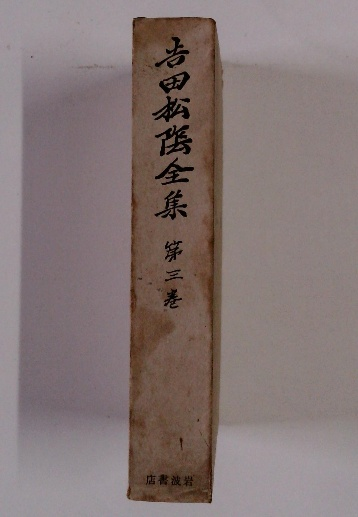 吉田松陰全集
第三巻
岩波書店